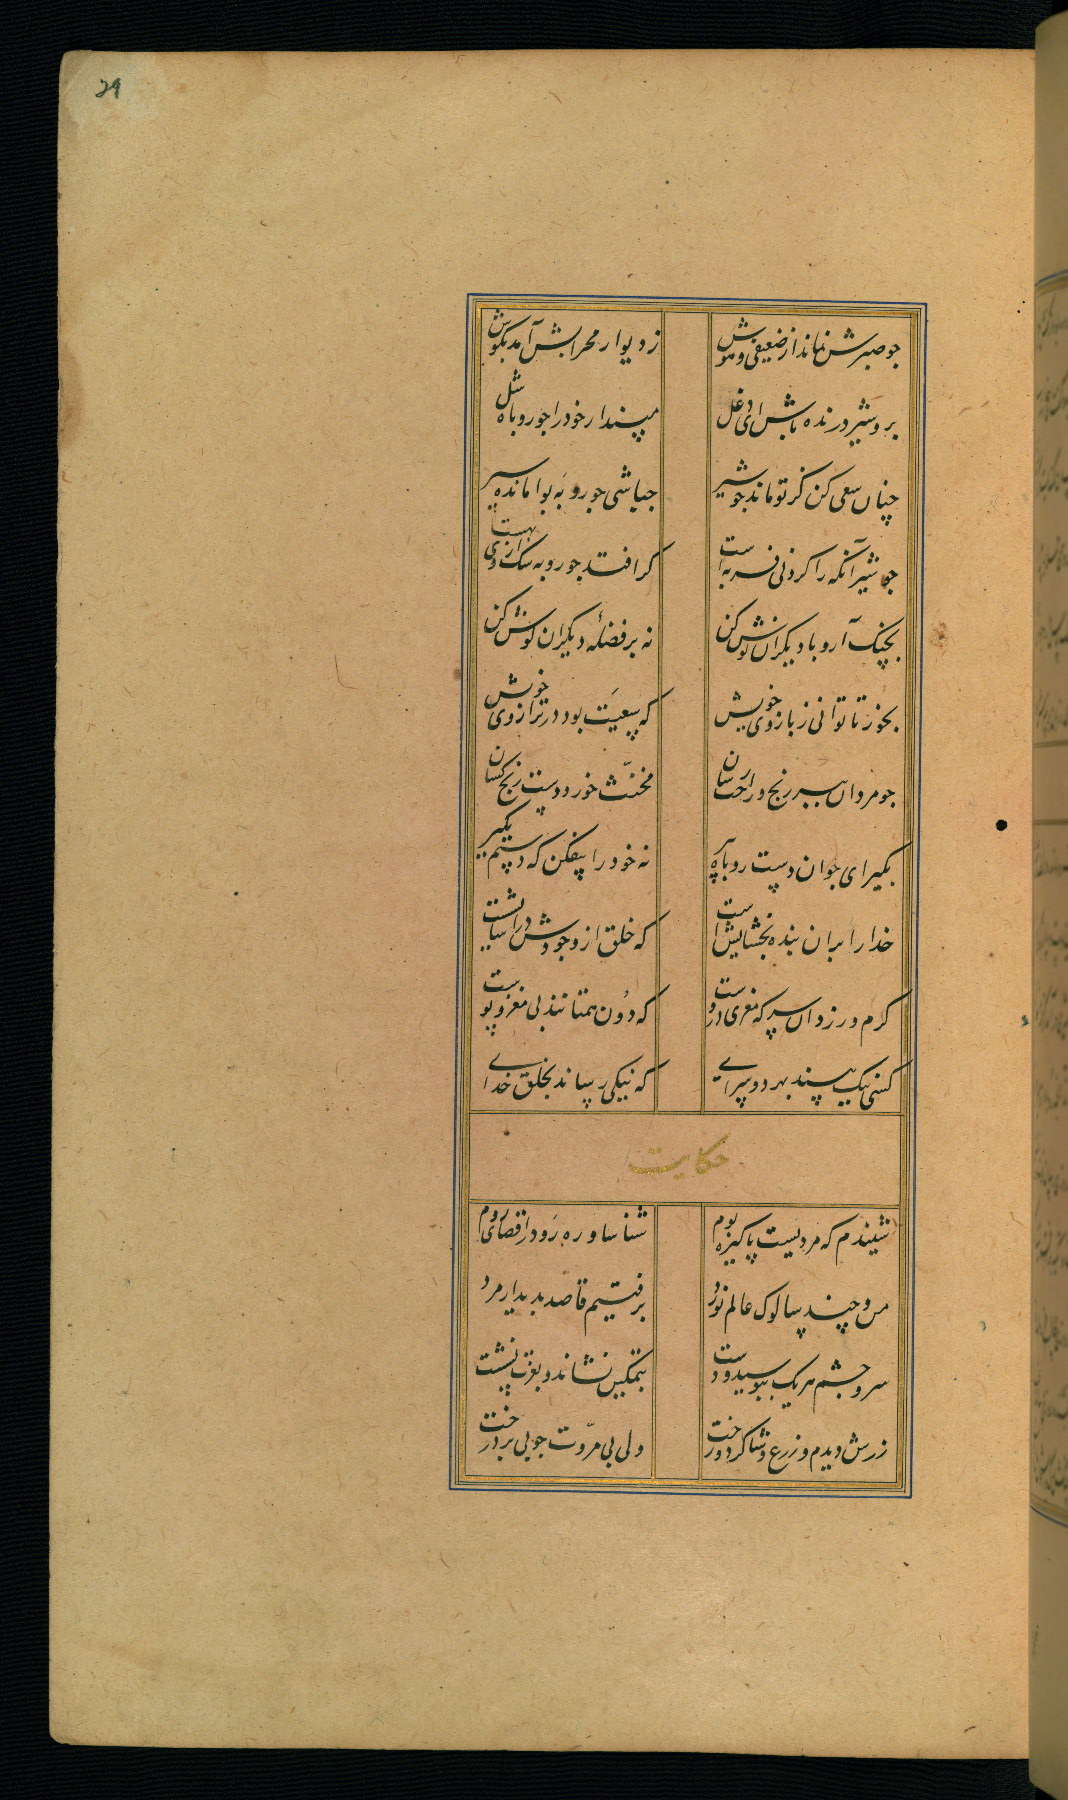 29
جو صبرش نماند از ضعیفی و هوش ز دیوار محرابش آمد بکوش
برو شیر درنده باش ای دغل مپندار خود را جو روباه شل
چنان سعی کن کز تو ماند جو شیر جباشی جو روبه بوا مانده سیر
جو شیر آنکه را کردنی فربه است کر افتد جو روبه سک از وی بهست
بچنک آر و با دیکران نوش کن نه بر فضلهٔ دیکران کوش کن
بخور تا توانی ز بازوی خویش که سعیت بود در ترازوی خویش
جو مردان ببر رنج و راحت رسان مخنّث خورد دست رنج کسان
بکیر ای جوان دست روباه پیر نه خود را بیفکن که دستم بکیر
خدا را بران بنده بخشایش است که خلق از وجودش در آسایشت
کرم ورزد آن سر که مغزی دروست که دون همتانند بی مغز و پوست
کسی نیک بیند بهر دو سرای که نیکی رساند بخلق خدای
حکایت
شنیدم که مردیست پاکیزه بوم شناسا و ره رَو در اقصای روم
من و چند سالوک عالم نورد برفتیم قاصد بدیدار مرد
سر و چشم هر یک ببوسید و دست بتمکین نشاند و بعزت نشست
زرش دیدم و زرع و شاکرد و رخت ولی بی مرّوت جو بی بر درخت